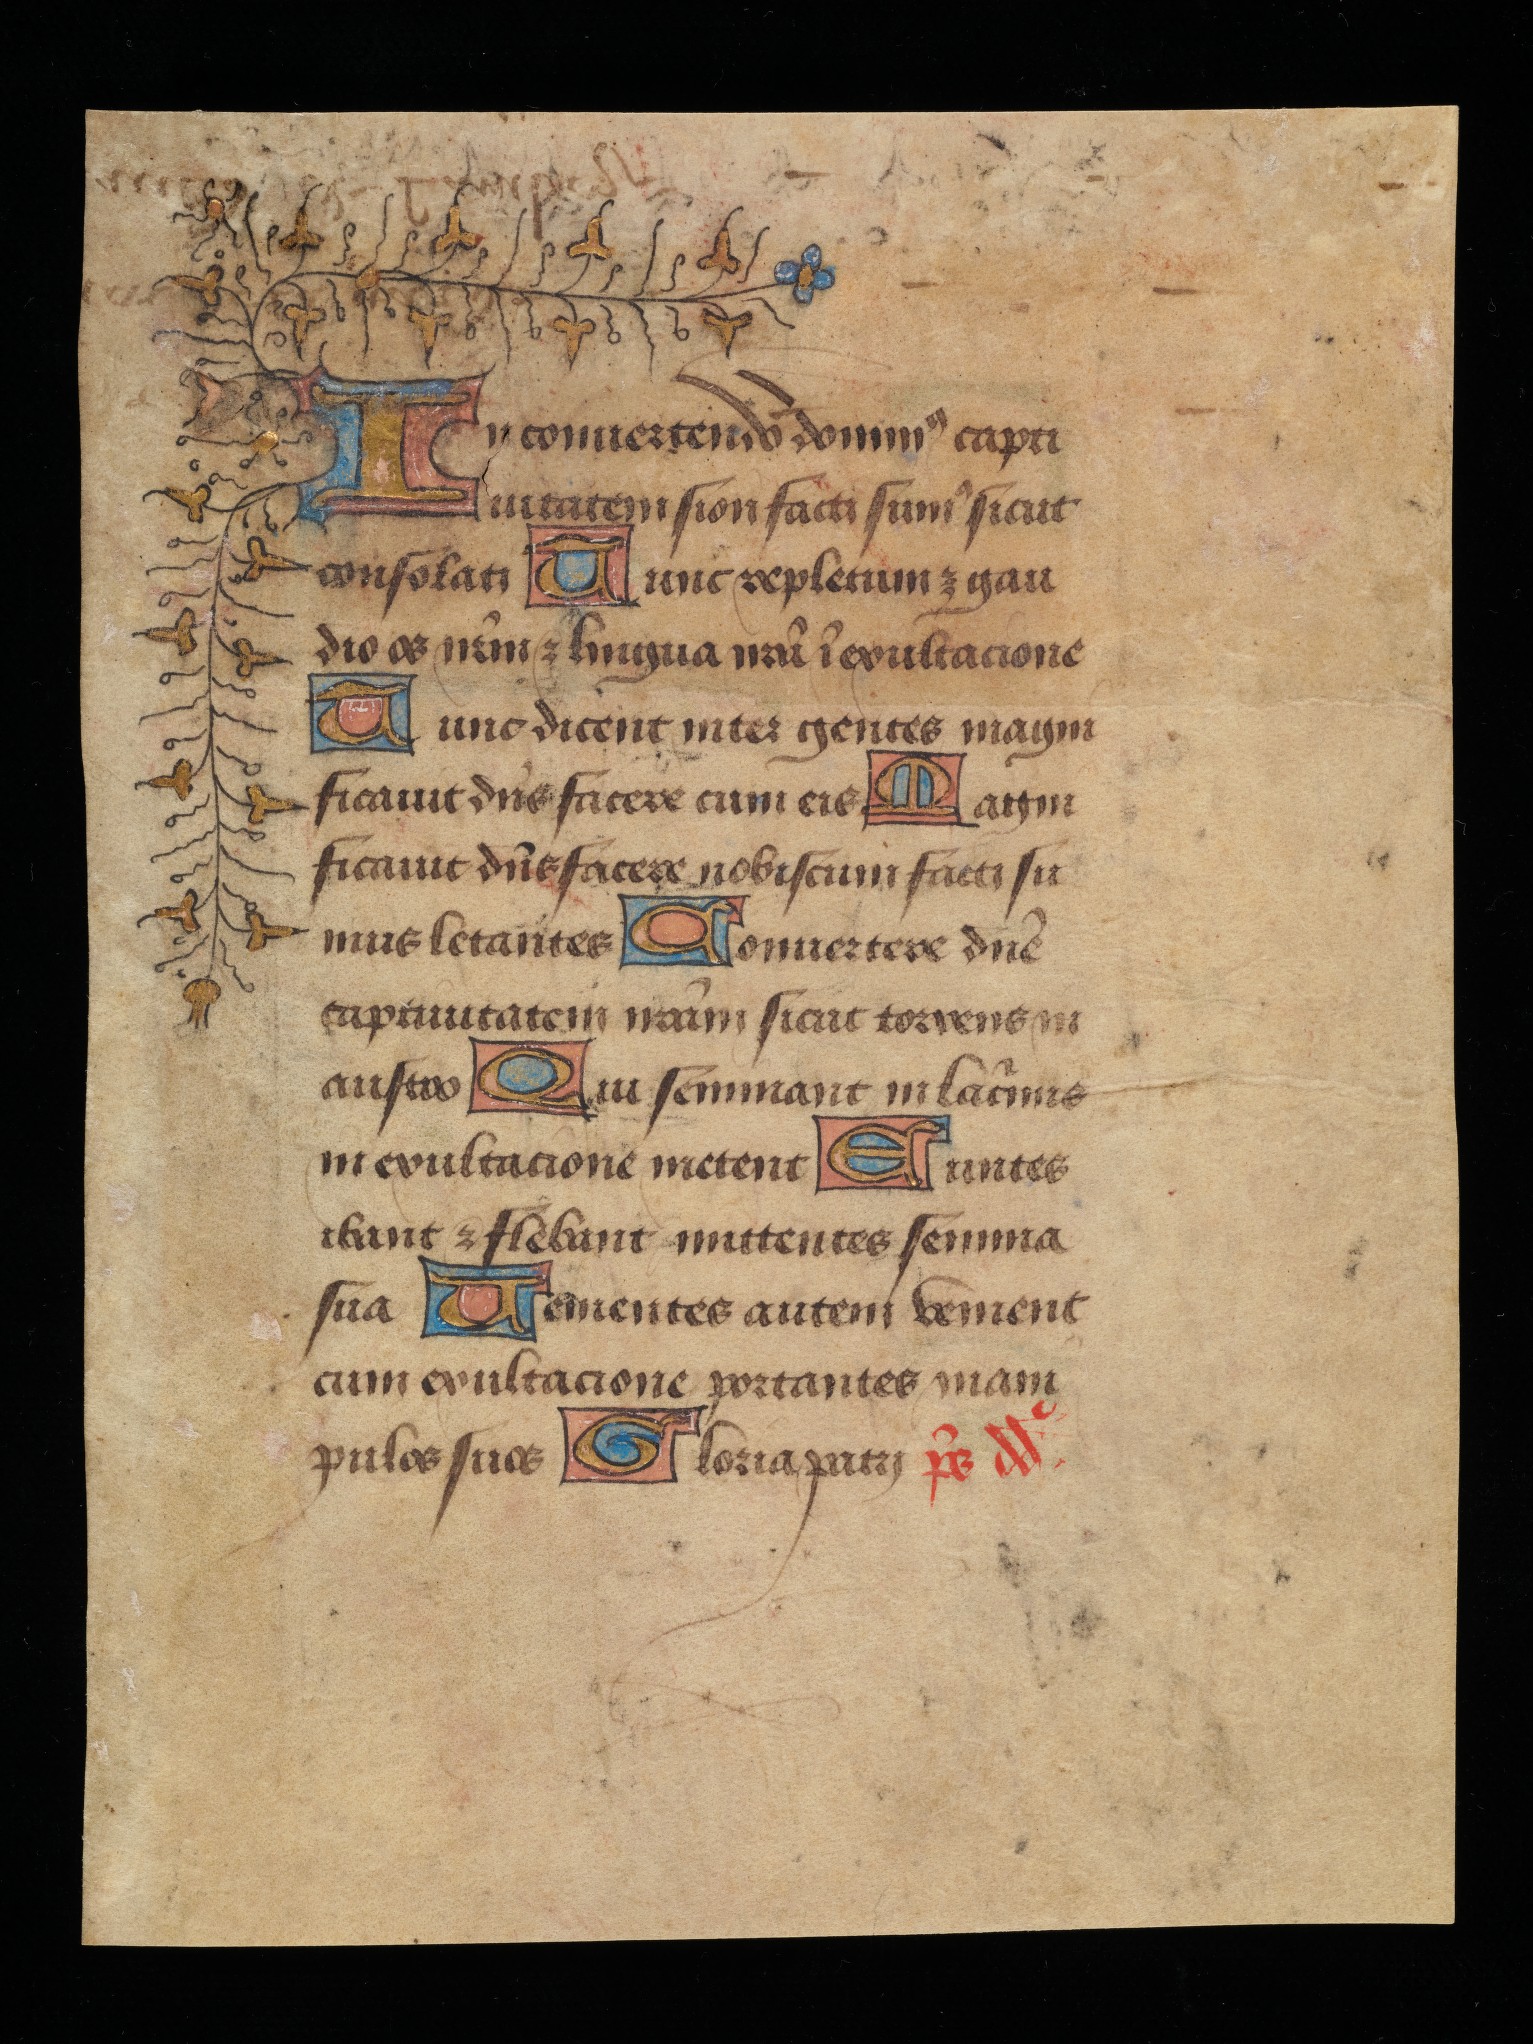 In conuertendo dominꝰ capti
uitatem sion facti sumꝰ sicut
consolati Tunc repletum ⁊ gau
dio os nr̄m ⁊ lingua nrā ī exultacione
Tunc dicent inter gentes magni
ficauit dn̄s facere cum eis Magni
ficauit dn̄s facere nobiscum facti su
mus letantes Conuertere dn̄e
captiuitatem nrām sicut torrens in
austro Qui seminant in lac̄mis
in exultacione metent Euntes
ibant ⁊ flebant mittentes semina
sua Uenientes autem venient
cum exultacione portantes mani
pulos suos Gloria patri p̄s